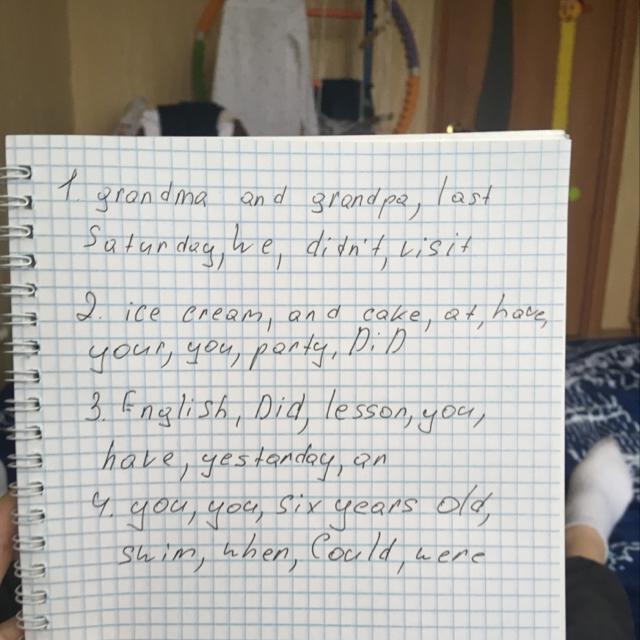 1. grandma and grandpa, last
Saturday, We, didn't, visit
2. ice cream, and cake, at, have,
your, you, party, DiD
3. English, Did, lesson, you,
have, yestarday, an
4. you, you, six years old,
swim, when, Could, were